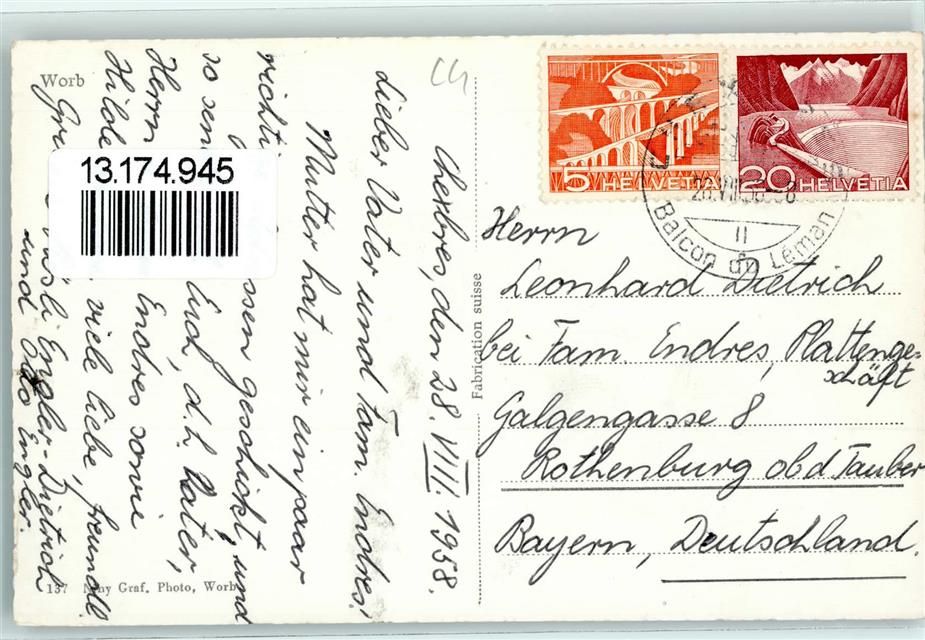 Worb
13.174.945
CH
Chexbres, den 28. VIII. 1958.
Lieber Vater und Fam. Endres!
Mutter hat mir ein paar
richti ssen geschickt, und
so sen Euch, d.h. Vater,
Herrn Endres sowie
Hilde viele liebe, freundl.
Grü Engler-Dietrich
und Otto Engler.
137 Graf. Photo, Worb
Fabrication suisse
5 HELVETIA
20 HELVETIA
Balcon du Léman
II
Herrn
Leonhard Dietrich
bei Fam Endres, Plattenge-
schäft
Galgengasse 8
Rothenburg ob d Tauber
Bayern, Deutschland.